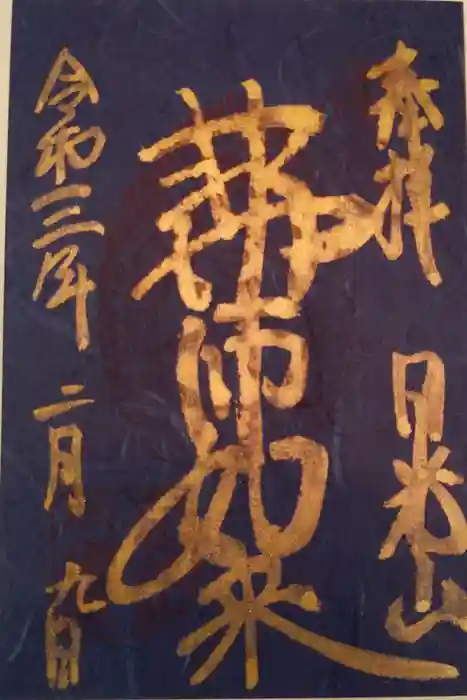 奉拝 日光山
薬師如来
令和三年二月九日